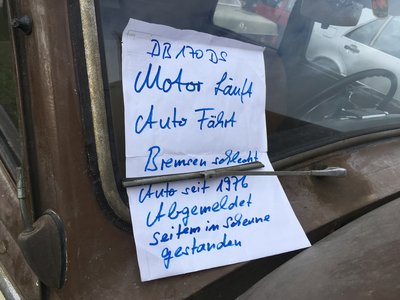 DB 170 DS
Motor Läuft
Auto Fährt
Bremsen schlecht
Auto seit 1976
Abgemeldet
seitem in Scheune
gestanden